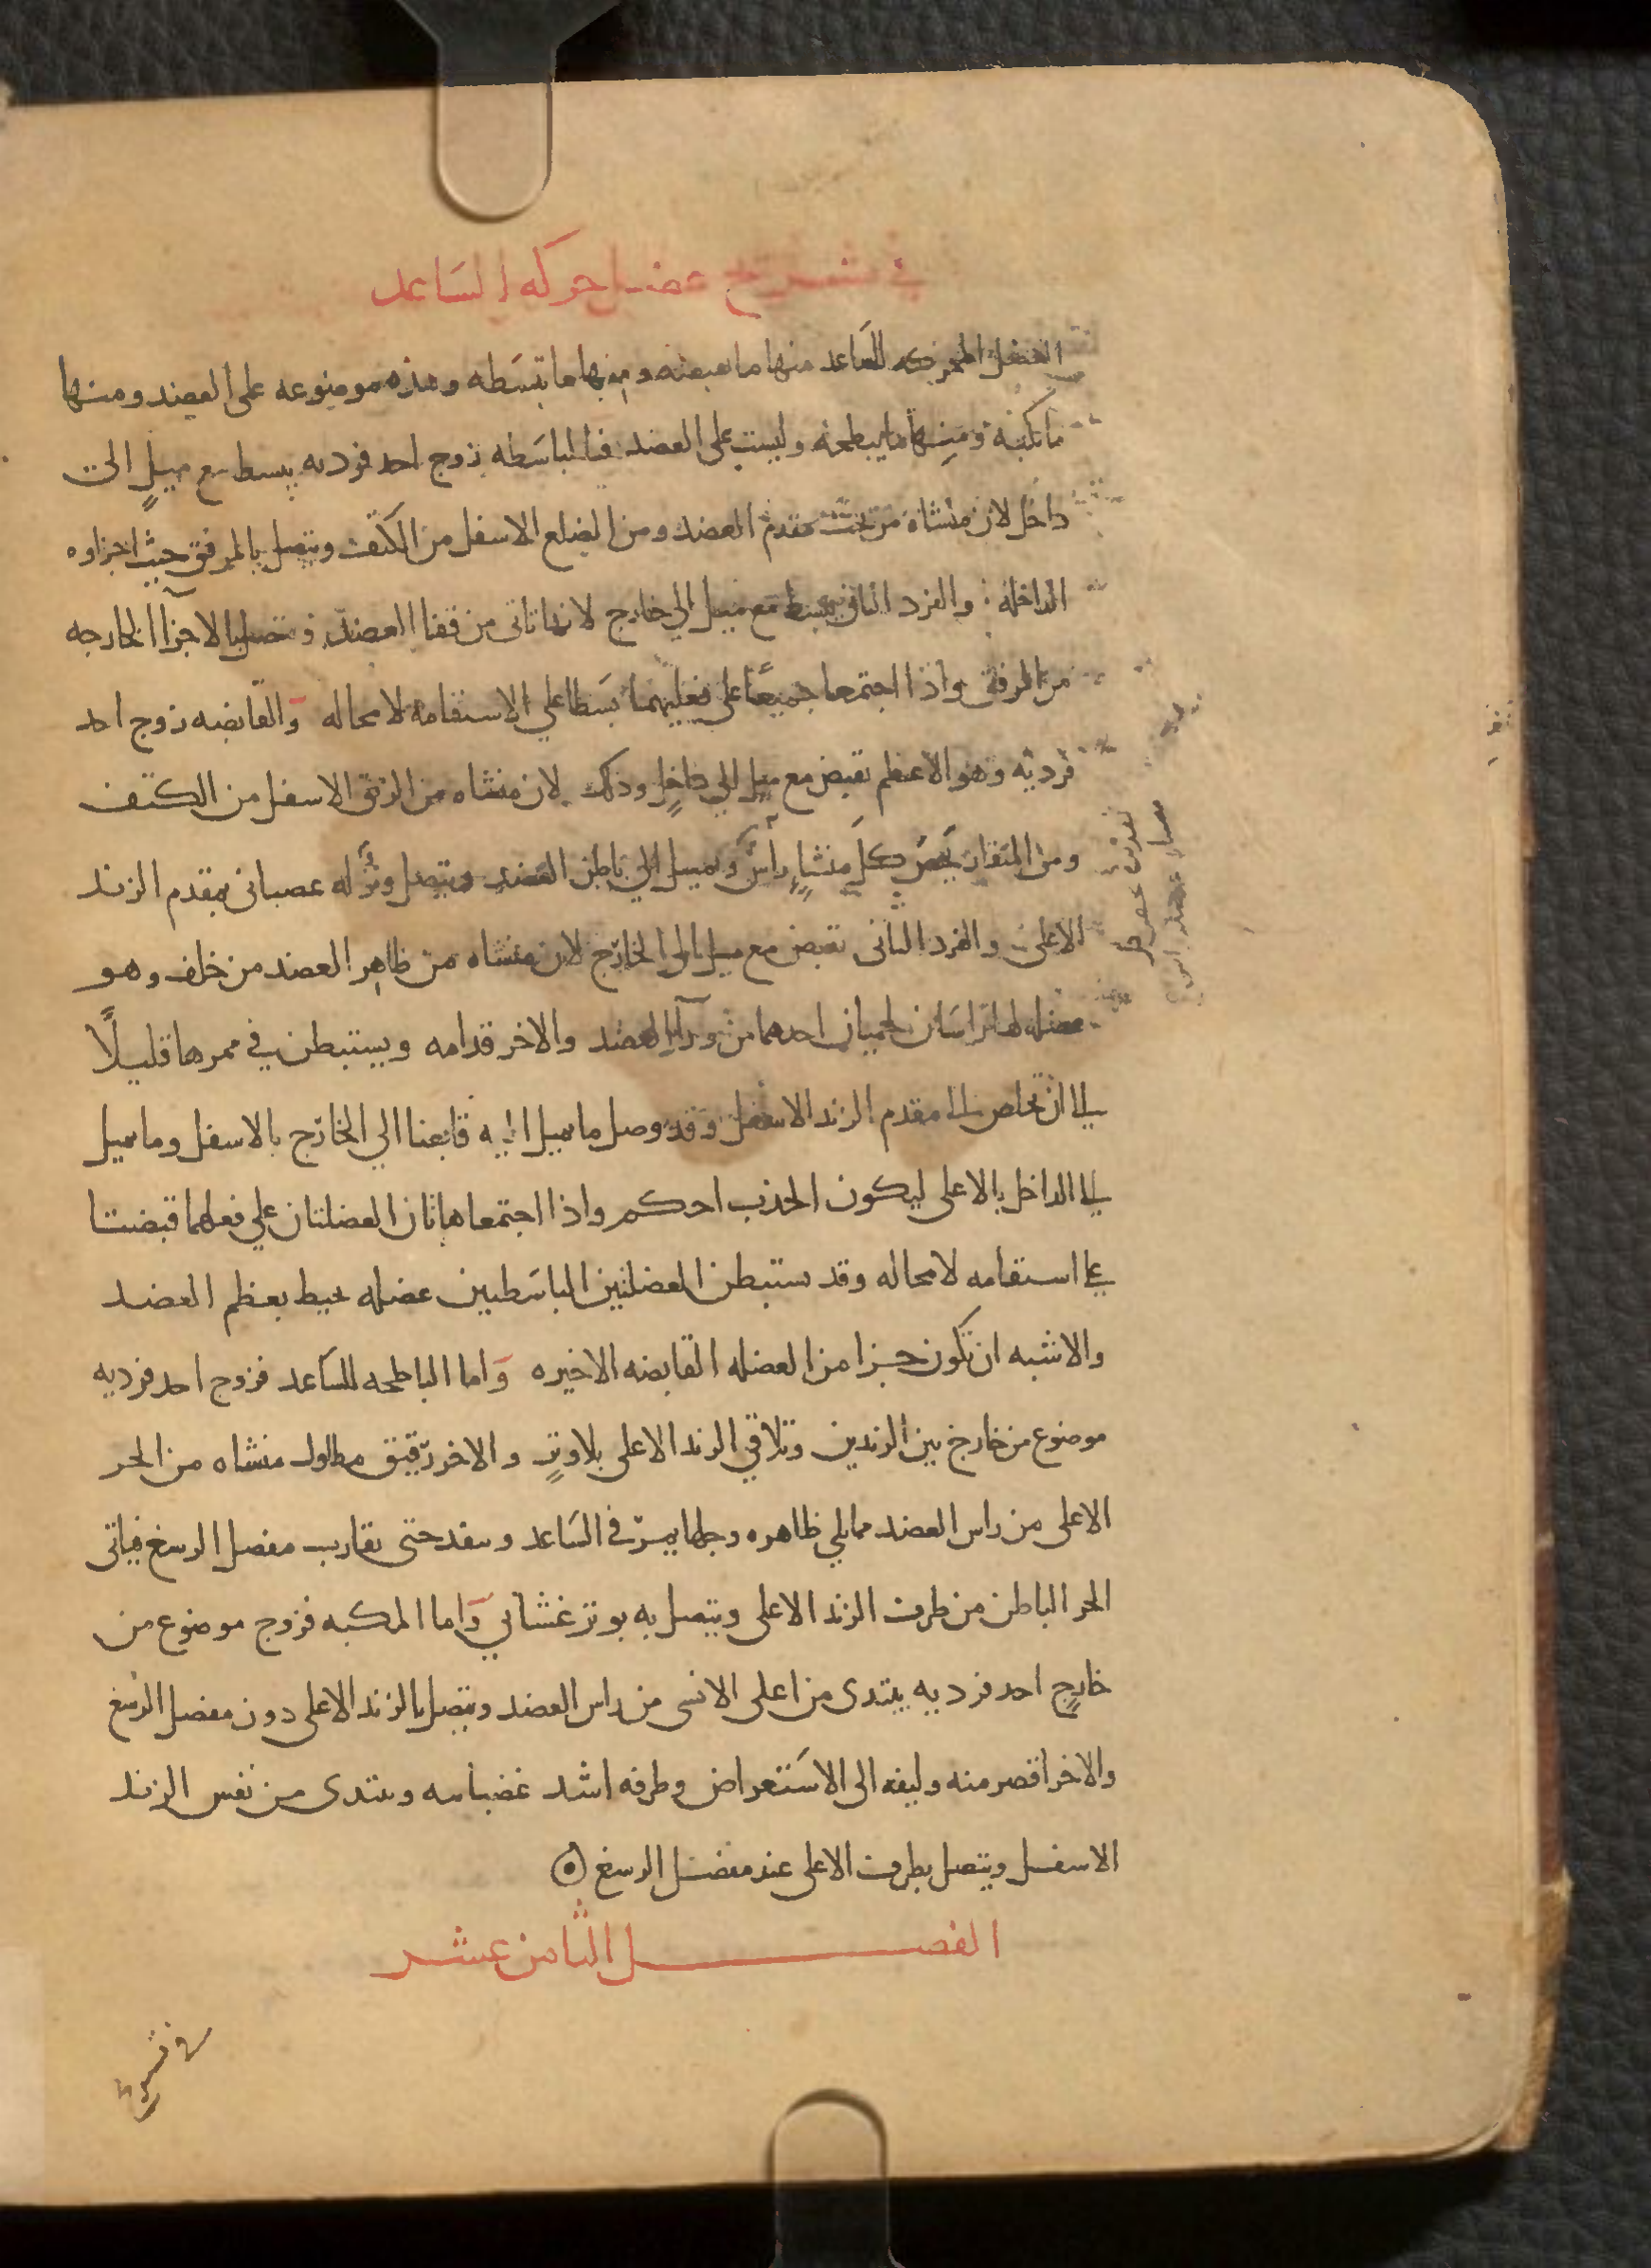 في تشريح عضل حركه الساعد
العضل المحركه للساعد منها ما تقبضه ومنها ما تبسطه وهذه موضوعه على العضد ومنها
ما تكبه ومنها ما يبطحه وليست على العضد فالباسطه زوج احد فرديه يبسط مع ميلٍ الى
داخل لان منشاه من تحت مقدم العضد ومن الضلع الاسفل من الكتف ويتصل بالمرفق حيث اجزاوه
الداخله والفرد الثاني يبسط مع ميل الي خارج لانه تاتى من قفا العضد ويتصل بالاجزآ الخارجه
من المرفق واذا اجتمعا جميعًا على فعليهما بسطا علي الاستقامه لا محاله وَالقابضه زوج احد
فرديه وهو الاعظم تقبض مع ميل الي داخلٍ وذلك لان منشاه من الزيق الاسفل من الكتف
ومن المنقار يخص كل منشاءٍ رأس وتميل الي باطن العضد ويتصل وتر له عصبانى بمقدم الزند
الاعلى والفرد الثانى تقبض مع ميل الى الخارج لان منشاه من ظاهر العضد من خلف وهو
عضله لها راسان لحميان احدهما من ورآ العضد والاخر قدامه ويستبطن في ممرها قليلًا
الى ان تخلص الى مقدم الزند الاسفل وقد وصل ما يميل اليه قابضا الي الخارج بالاسفل وما يميل
الى الداخل بالاعلى ليكون الجذب احكم واذا اجتمعا هاتان العضلتان علي فعلهما قبضتا
على استقامه لا محاله وقد يستبطن العضلتين الباسَطتين عضله تحيط بعظم العضد
والاشبه ان تكون جزا من العضله القابضه الاخيره وَاما الباطحه للساعد فزوج احد فرديه
موضوع من خارج بين الزندين وتلاقي الزند الاعلى بلا وترٍ والاخر رقيق مطاول منشاه من الجز
الاعلى من راس العضد مما يلي ظاهره وجلها يمرّ في الساعد وينفذ حتى يقارب مفصل الرسغ فياتى
الجز الباطن من طرف الزند الاعلى ويتصل به بوتر غشايي وَاما المكبه فزوج موضوع من
خارجٍ احد فرديه يبتدى من اعلى الانسى من راس العضد ويتصل بالزند الاعلى دون مفصل الرسغ
والاخر اقصر منه وليفه الى الاستعراض وطرفه اشد عصبانيه ويبتدى من نفس الزند
الاسفل ويتصل بطرف الاعلى عند مفصل الرسغ
الفصل الثامن عشر
في تشريح